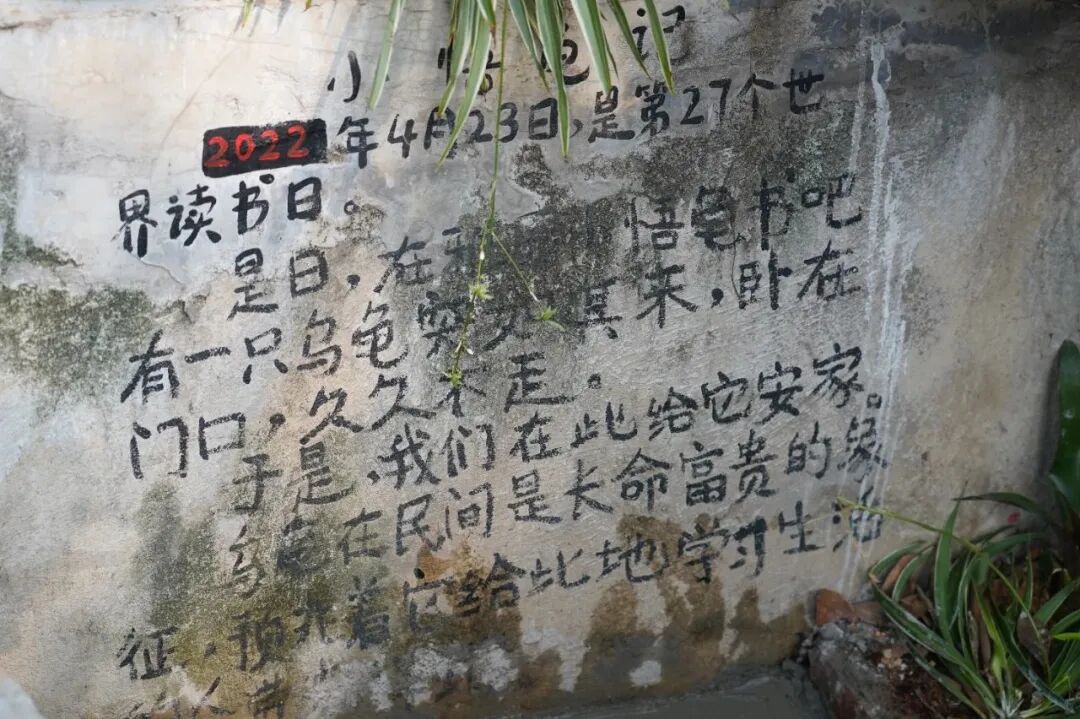 小悟龟记
2022年4月23日,是第27个世
界读书日。
是日,在 悟龟书吧
有一只乌龟突 其来,卧在
门口,久久不走.
于是,我们在此给它安家.
乌龟在民间是长命富贵的象
征,预兆着它给此地学习生活